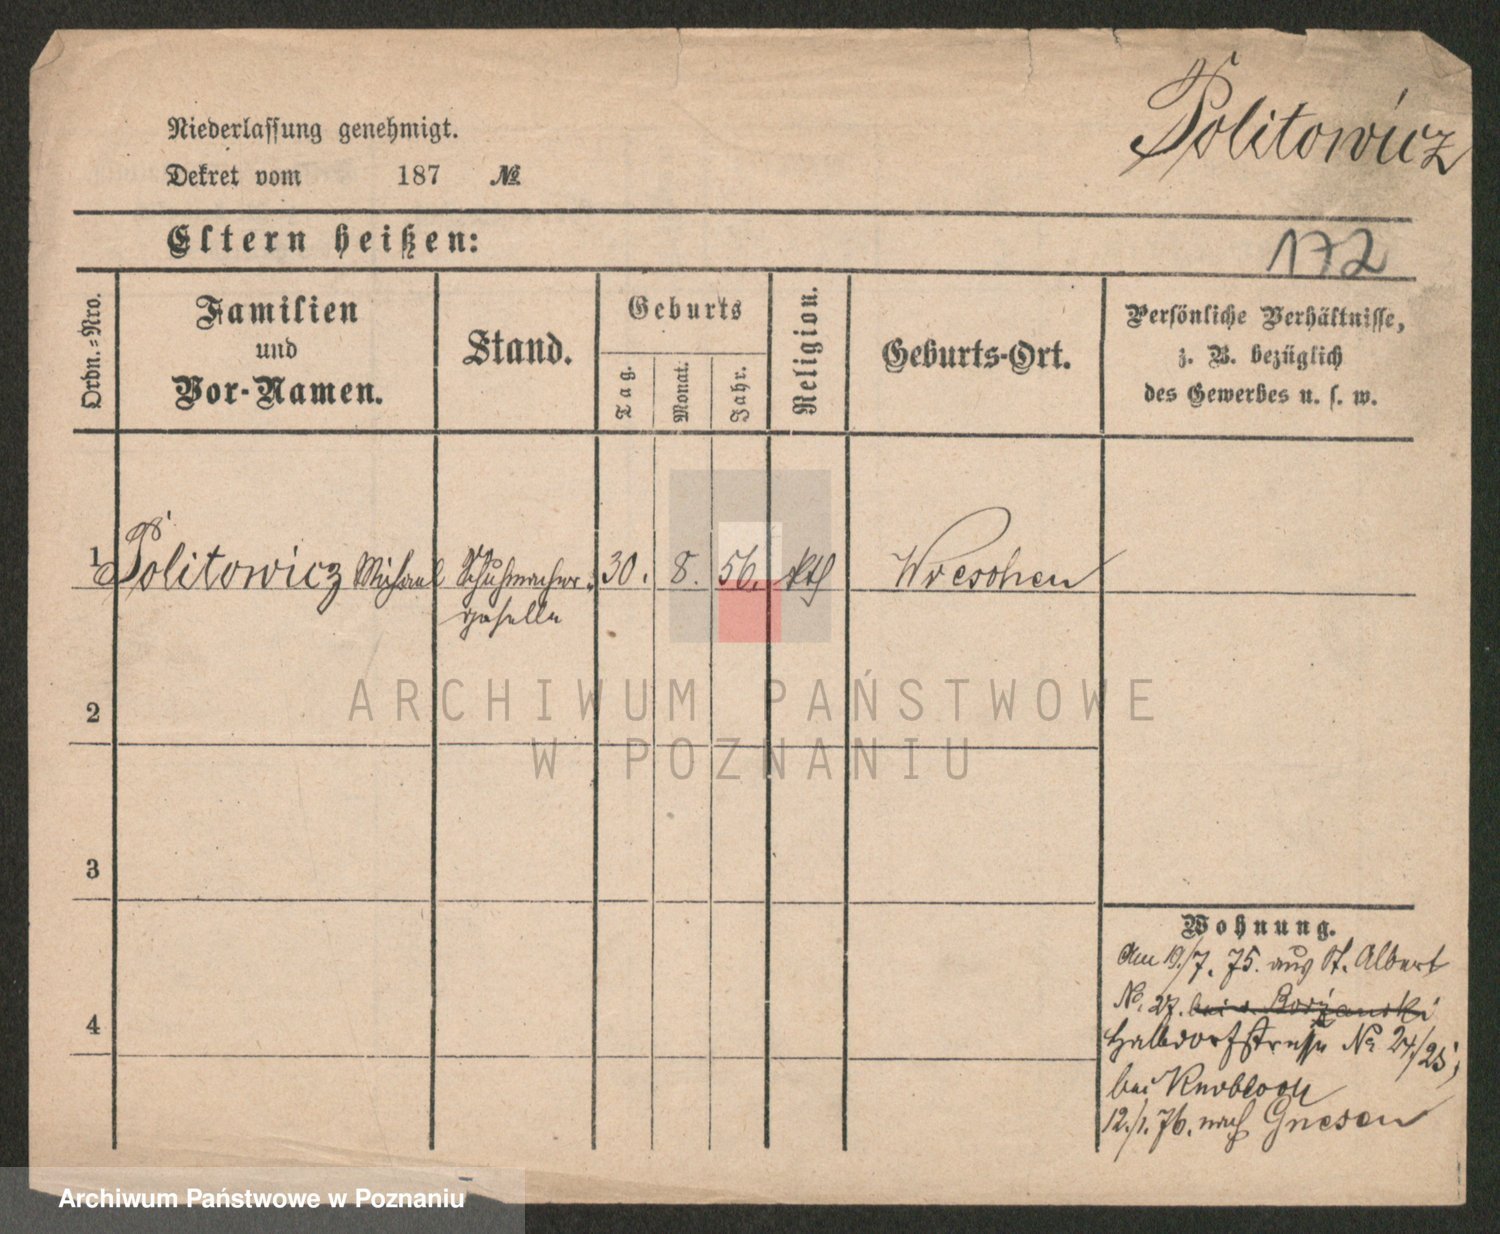 Politowicz
Niederlassung genehmigt.
Dekret vom 187 №
Eltern heißen:
172
Ordn.=Nro.
Familien
und
Vor-Namen.
Stand.
Geburts
Tag.
Monat.
Jahr.
Religion.
Geburts-Ort.
Persönliche Verhältnisse,
z. B. bezüglich
des Gewerbes u. s. w.
1 Politowicz Michael Schuhmacher- 30. 8. 56. kth Wreschen
geselle
ARCHIWUM PAŃSTWOWE
W POZNANIU
2
3
4
Wohnung.
Am 19./7. 75. aus St. Albert
No. 27. bei v. Rożanski
Halbdorfstrasse No 24/25,
bei Knobloch
12./1. 76. nach Gnesen
Archiwum Państwowe w Poznaniu